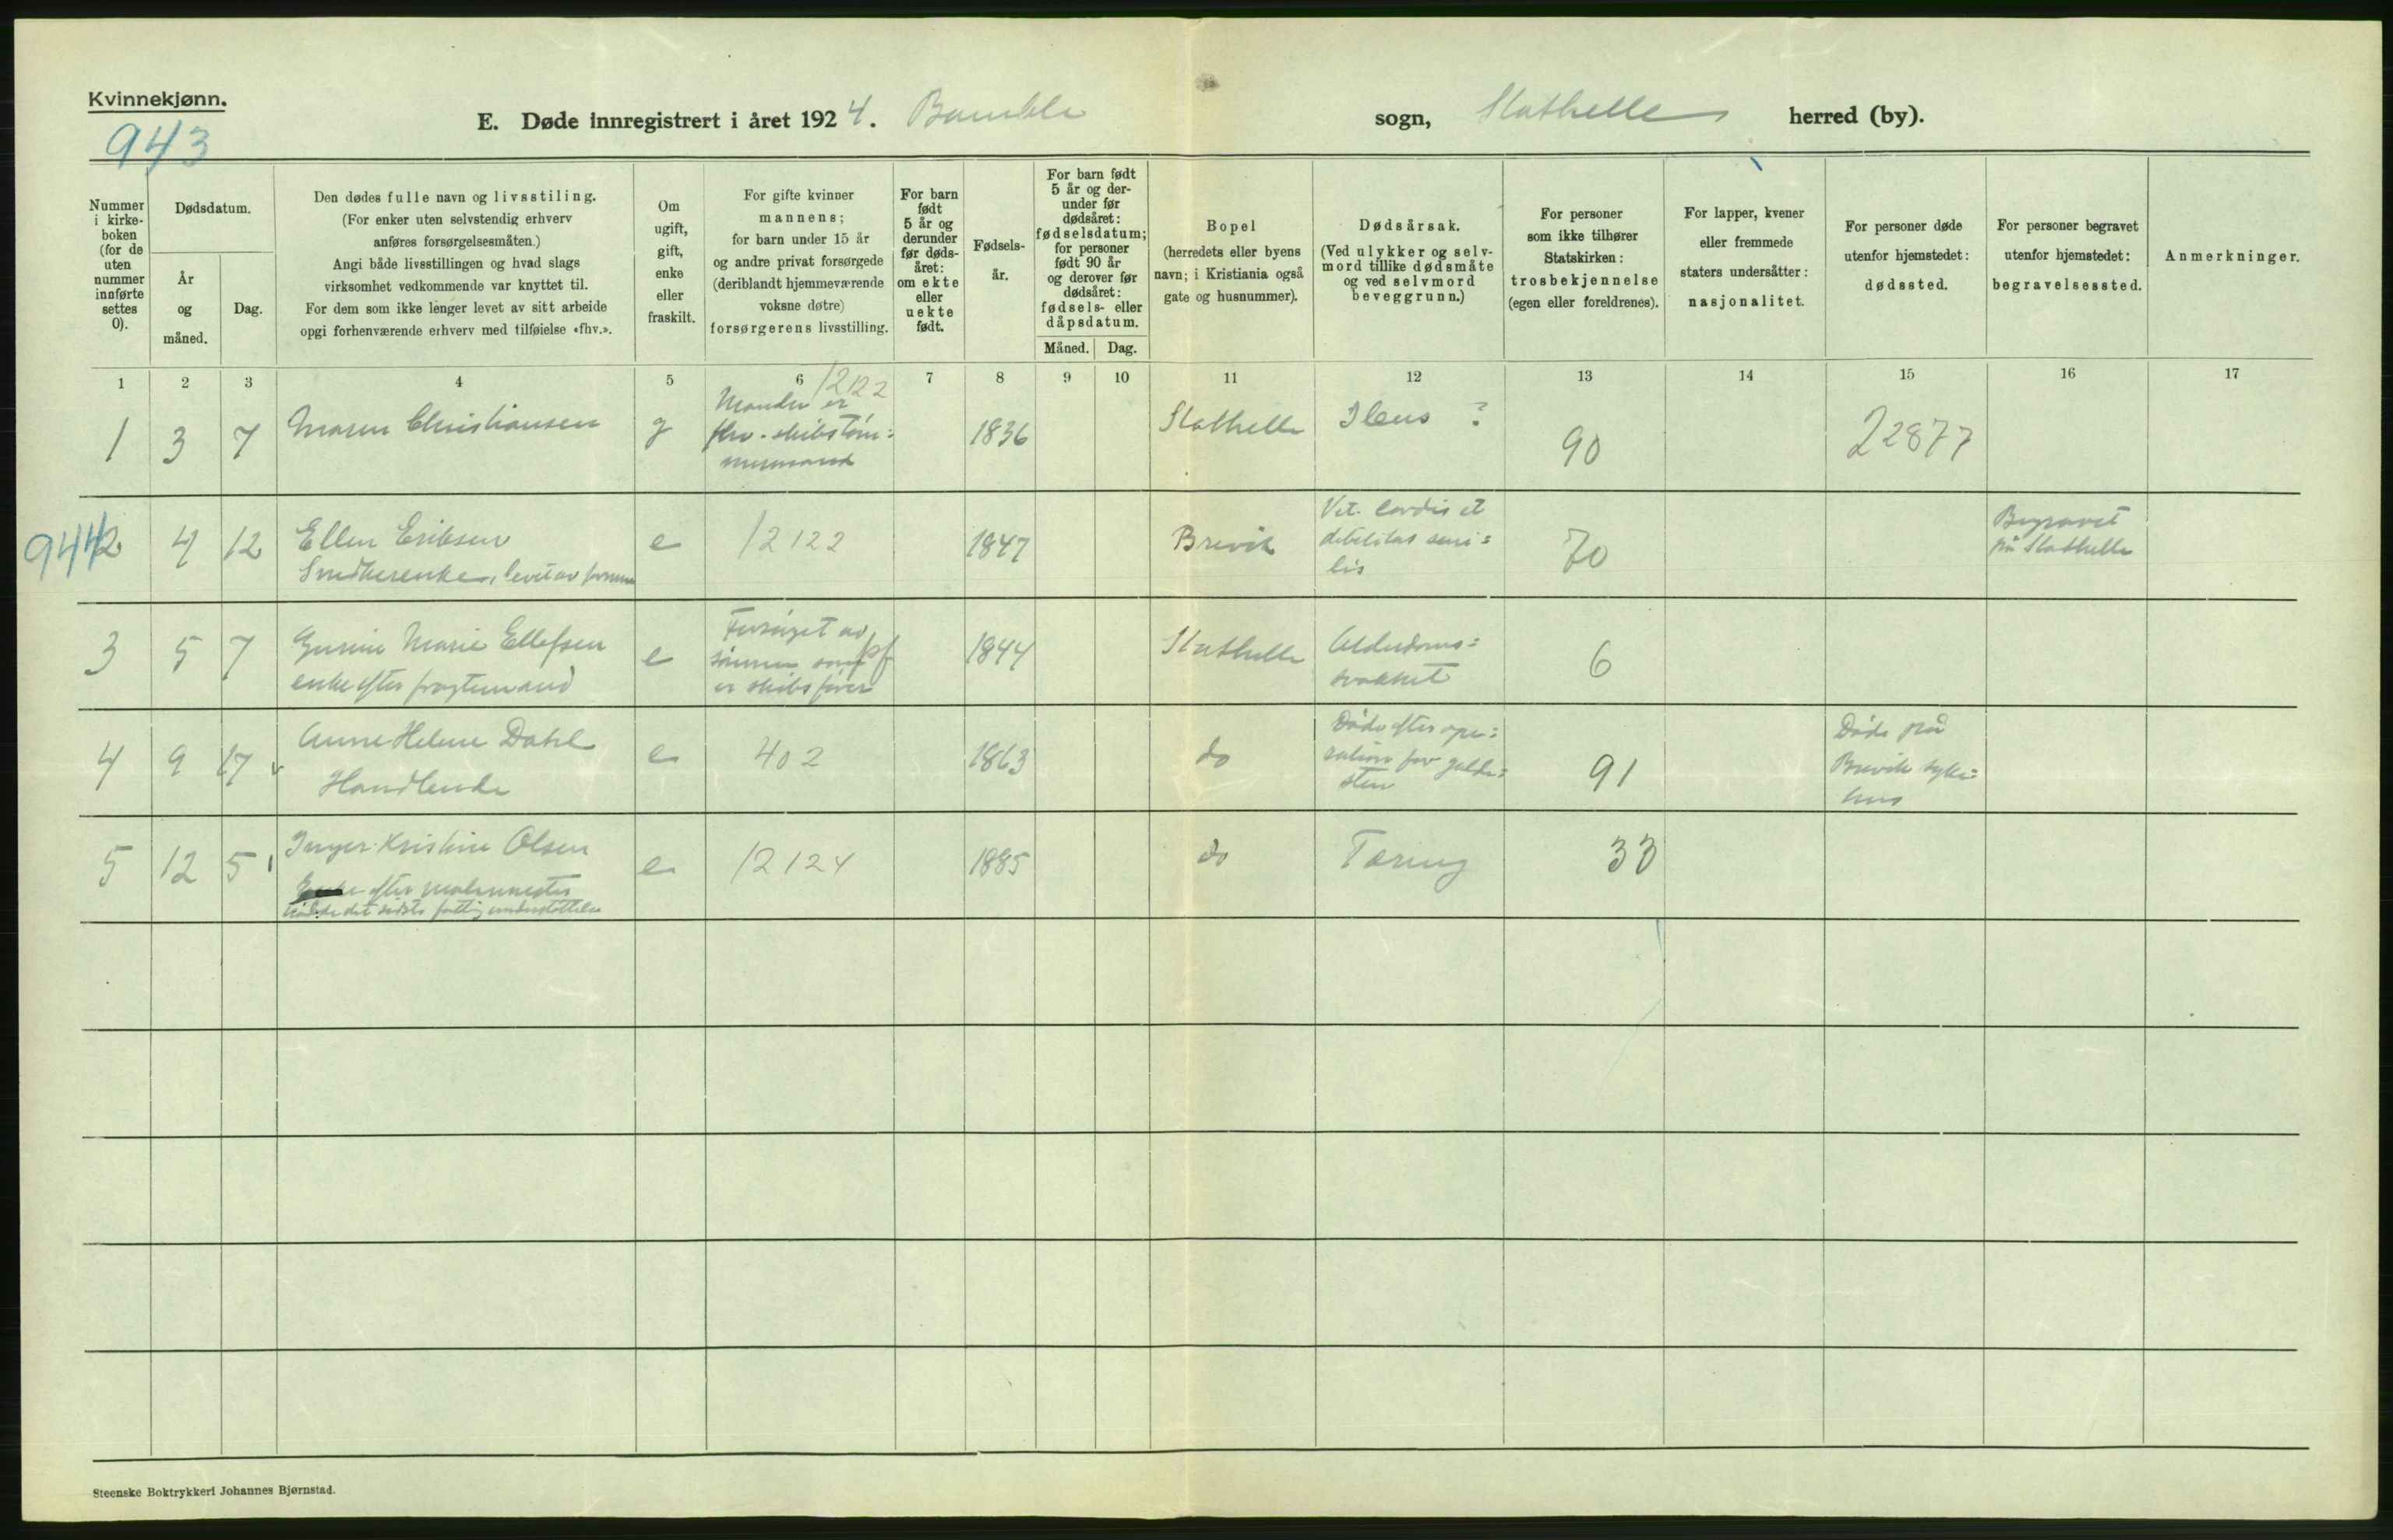 Kvinnekjønn.
943
E. Døde innregistrert i året 1924. Bamble sogn, Stathelle herred (by).
Nummer i kirkeboken (for de uten nummer innførte settes 0).
Dødsdatum.
År og måned.
Dag.
Den dødes fulle navn og livsstiling.
(For enker uten selvstendig erhverv
anføres forsørgelsesmåten.)
Angi både livsstillingen og hvad slags
virksomhet vedkommende var knyttet til.
For dem som ikke lenger levet av sitt arbeide
opgi forhenværende erhverv med tilføielse «fhv.».
Om
ugift,
gift,
enke
eller
fraskilt.
For gifte kvinner
mannens;
for barn under 15 år
og andre privat forsørgede
(deriblandt hjemmeværende
voksne døtre)
forsørgerens livsstilling.
For barn
født
5 år og
derunder
før døds-
året:
om ekte
eller
uekte
født.
Fødsels-
år.
For barn født
5 år og der-
under før
dødsåret:
fødselsdatum;
for personer
født 90 år
og derover før
dødsåret:
fødsels- eller
dåpsdatum.
Måned. Dag.
Bopel
(herredets eller byens
navn; i Kristiania også
gate og husnummer).
Dødsårsak.
(Ved ulykker og selv-
mord tillike dødsmåte
og ved selvmord
beveggrunn.)
For personer
som ikke tilhører
Statskirken:
trosbekjennelse
(egen eller foreldrenes).
For lapper, kvener
eller fremmede
staters undersåtter:
nasjonalitet.
For personer døde
utenfor hjemstedet:
dødssted.
For personer begravet
utenfor hjemstedet:
begravelsessted.
Anmerkninger.
1 2 3 4 5 6 7 8 9 10 11 12 13 14 15 16 17
12122
1 3 7 Maren Christiansen g Manden er
fhv. skibstøm:
mermand
1836 Stathelle Ileus ? 90 22877
944
2 4 12 Ellen Eriksen
Snedkerenke, levet av formue
e 12122 1847 Brevik Vit. cordis et
debilitas seni:
lis
70 Begravet
på Stathelle
3 5 7 Gurine Marie Ellefsen
enke efter fragtemand
e Forsørget av
sønnen som
er skibsfører
pf
1844 Stathelle Alderdoms:
svakhet
6
4 9 17 Anne Helene Dahl
Handlende
e 402 1863 do Døde efter ope:
ration for galde:
sten
91 Døde på
Brevik syke:
hus
5 12 5 Inger Kristine Olsen
Enke efter malermester
det sidste fattigunderstøttelse
e 12124 1885 do Tæring 33
Steenske Boktrykkeri Johannes Bjørnstad.